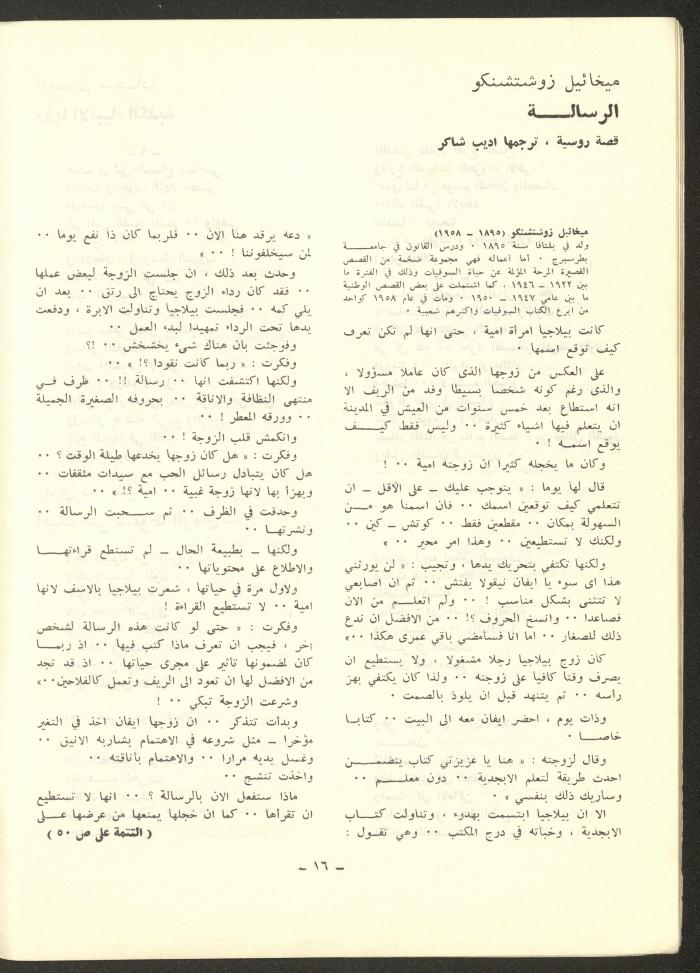 ميخائيل زوشتشنكو
الرسالــــة
قصة روسية ، ترجمها اديب شاكر
ميخائيل زوشتشنكو (١٨٩٥ – ١٩٥٨)
ولد في بلتافا سنة ١٨٩٥ ٠ ودرس القانون في جامعــة
بطرسبرج ٠ اما اعماله فهي مجموعة ضخمة من القصص
القصيرة المرحة المؤلمة عن حياة السوفيات وذلك في الفترة ما
بين ١٩٢٢ – ١٩٤٦ ، كما اشتملت على بعض القصص الوطنية
ما بين عامي ١٩٤٧ – ١٩٥٠ ٠ ومات في عام ١٩٥٨ كواحد
من ابرع الكتاب السوفيات واكثرهم شعبية ٠
كانت بيلاجيا امرأة امية ، حتى انها لم تكن تعرف
كيف توقع اسمها ٠
على العكس من زوجها الذى كان عاملا مسؤولا ،
والذى رغم كونه شخصا بسيطا وفد من الريف الا
انه استطاع بعد خمس سنوات من العيش في المدينة
ان يتعلم فيها اشياء كثيرة ٠٠ وليس فقط كيــف
يوقع اسمـه ! ٠
وكان ما يخجله كثيرا ان زوجته امية ٠٠ !
قال لها يوما : « يتوجب عليك – على الاقل – ان
تتعلمي كيف توقعين اسمك ٠٠ فان اسمنا هو مــن
السهولة بمكان ٠٠ مقطعين فقط ٠٠ كوتش – كين ٠٠
ولكنك لا تستطيعين ٠٠ وهذا امر محير ٠٠ »
ولكنها تكتفي بتحريك يدها ، وتجيب : « لن يورثني
هذا اى سوء يا ايفان نيقولا يفتش ٠٠ ثم ان اصابعي
لا تتثنى بشكل مناسب ! ٠٠ ولم اتعلــم من الان
فصاعدا ٠٠ وانسخ الحروف ؟! ٠٠ من الافضل ان ندع
ذلك للصغار ٠٠ اما انا فسأمضي باقي عمرى هكذا ٠٠»
كان زوج بيلاجيا رجلا مشغولا ، ولا يستطيع ان
يصرف وقتا كافيا على زوجته ٠٠ ولذا كان يكتفي بهز
رأسه ٠٠ ثم يتنهد قبل ان يلوذ بالصمت ٠
وذات يوم ، احضر ايفان معه الى البيت ٠٠ كتابـا
خاصـا ٠
وقال لزوجته : « هنا يا عزيزتي كتاب يتضمــن
احدث طريقة لتعلم الابجدية ٠٠ دون معلــم ٠٠
وساريك ذلك بنفسي » ٠
الا ان بيلاجيا ابتسمت بهدوء ، وتناولت كتــاب
الابجدية ، وخبأته في درج المكتب ٠٠ وهي تقـول :
« دعه يرقد هنا الان ٠٠ فلربما كان ذا نفع يوما ٠٠
لمن سيخلفوننا ! ٠٠ »
وحدث بعد ذلك ، ان جلست الزوجة لبعض عملها
٠٠ فقد كان رداء الزوج يحتاج الى رتق ٠٠ بعد ان
بلي كمه ٠٠ فجلست بيلاجيا وتناولت الابرة ، ودفعت
يدها تحت الرداء تمهيدا لبدء العمل ٠٠
وفوجئت بان هناك شىء يخشخش ٠٠ !؟
وفكرت : « ربما كانت نقودا ؟! » ٠٠
ولكنها اكتشفت انها ٠٠ رسالة !! ٠٠ ظرف فــي
منتهى النظافة والاناقة ٠٠ بحروفه الصغيرة الجميلة
٠٠ وورقه المعطر ! ٠٠
وانكمش قلب الزوجة ! ٠٠
وفكرت : « هل كان زوجها يخدعها طيلة الوقت ؟ ٠٠
هل كان يتبادل رسائل الحب مع سيدات مثقفات ٠٠
ويهزأ بها لانها زوجة غبية ٠٠ امية ؟! » ٠٠
وحدقت في الظرف ٠٠ ثم سـحبت الرسالة ٠٠
ونشرتهـا ٠٠
ولكنها – بطبيعة الحال – لم تستطع قراءتهـــا
والاطلاع على محتوياتها ٠٠
ولاول مرة في حياتها ، شعرت بيلاجيا بالاسف لانها
امية ٠٠ لا تستطيع القراءة !
وفكرت : « حتى لو كانت هذه الرسالة لشخص
آخر ، فيجب ان تعرف ماذا كتب فيها ٠٠ اذ ربمـا
كان لمضمونها تأثير على مجرى حياتها ٠٠ اذ قد تجد
من الافضل لها ان تعود الى الريف وتعمل كالفلاحين٠٠»
وشرعت الزوجة تبكي ٠٠ !
وبدأت تتذكر ٠٠ ان زوجها ايفان اخذ في التغير
مؤخرا – مثل شروعه في الاهتمام بشاربه الانيق ٠٠
وغسل يديه مرارا ٠٠ والاهتمام بأناقته ٠٠
واخذت تنشج ٠٠
ماذا ستفعل الان بالرسالة ؟ ٠٠ انها لا تستطيع
ان تقرأها ٠٠ كما ان خجلها يمنعها من عرضها علـى
( التتمة على ص ٥٠ )
– ١٦ –